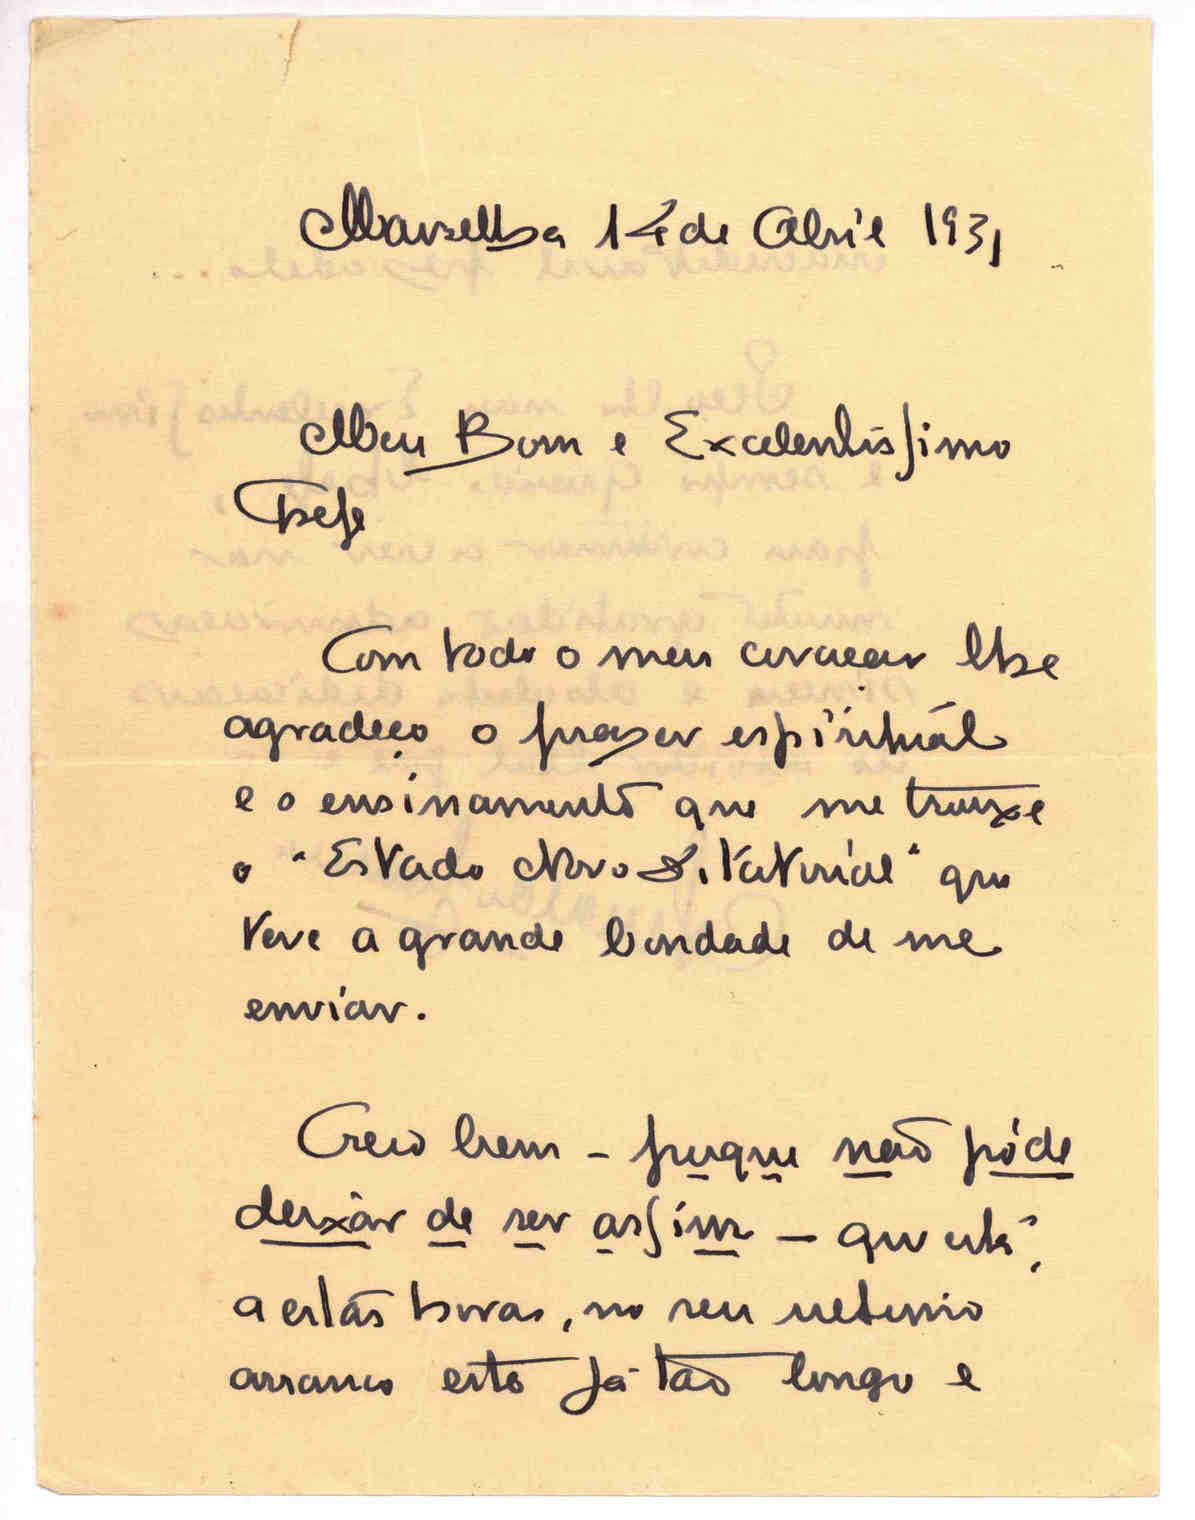 Marselha 14 de Abril 1931
Meu Bom e Excelentissimo
Chefe
Com todo o meu coração lhe
agradeço o prazer espirituál
e o ensinamento que me trouxe
o "Estado Novo Ditatorial" que
teve a grande bondade de me
enviar.
Creio bem - porque não póde
deixàr de ser assim - que está,
a estas horas, no seu
arranco este já tão longo e